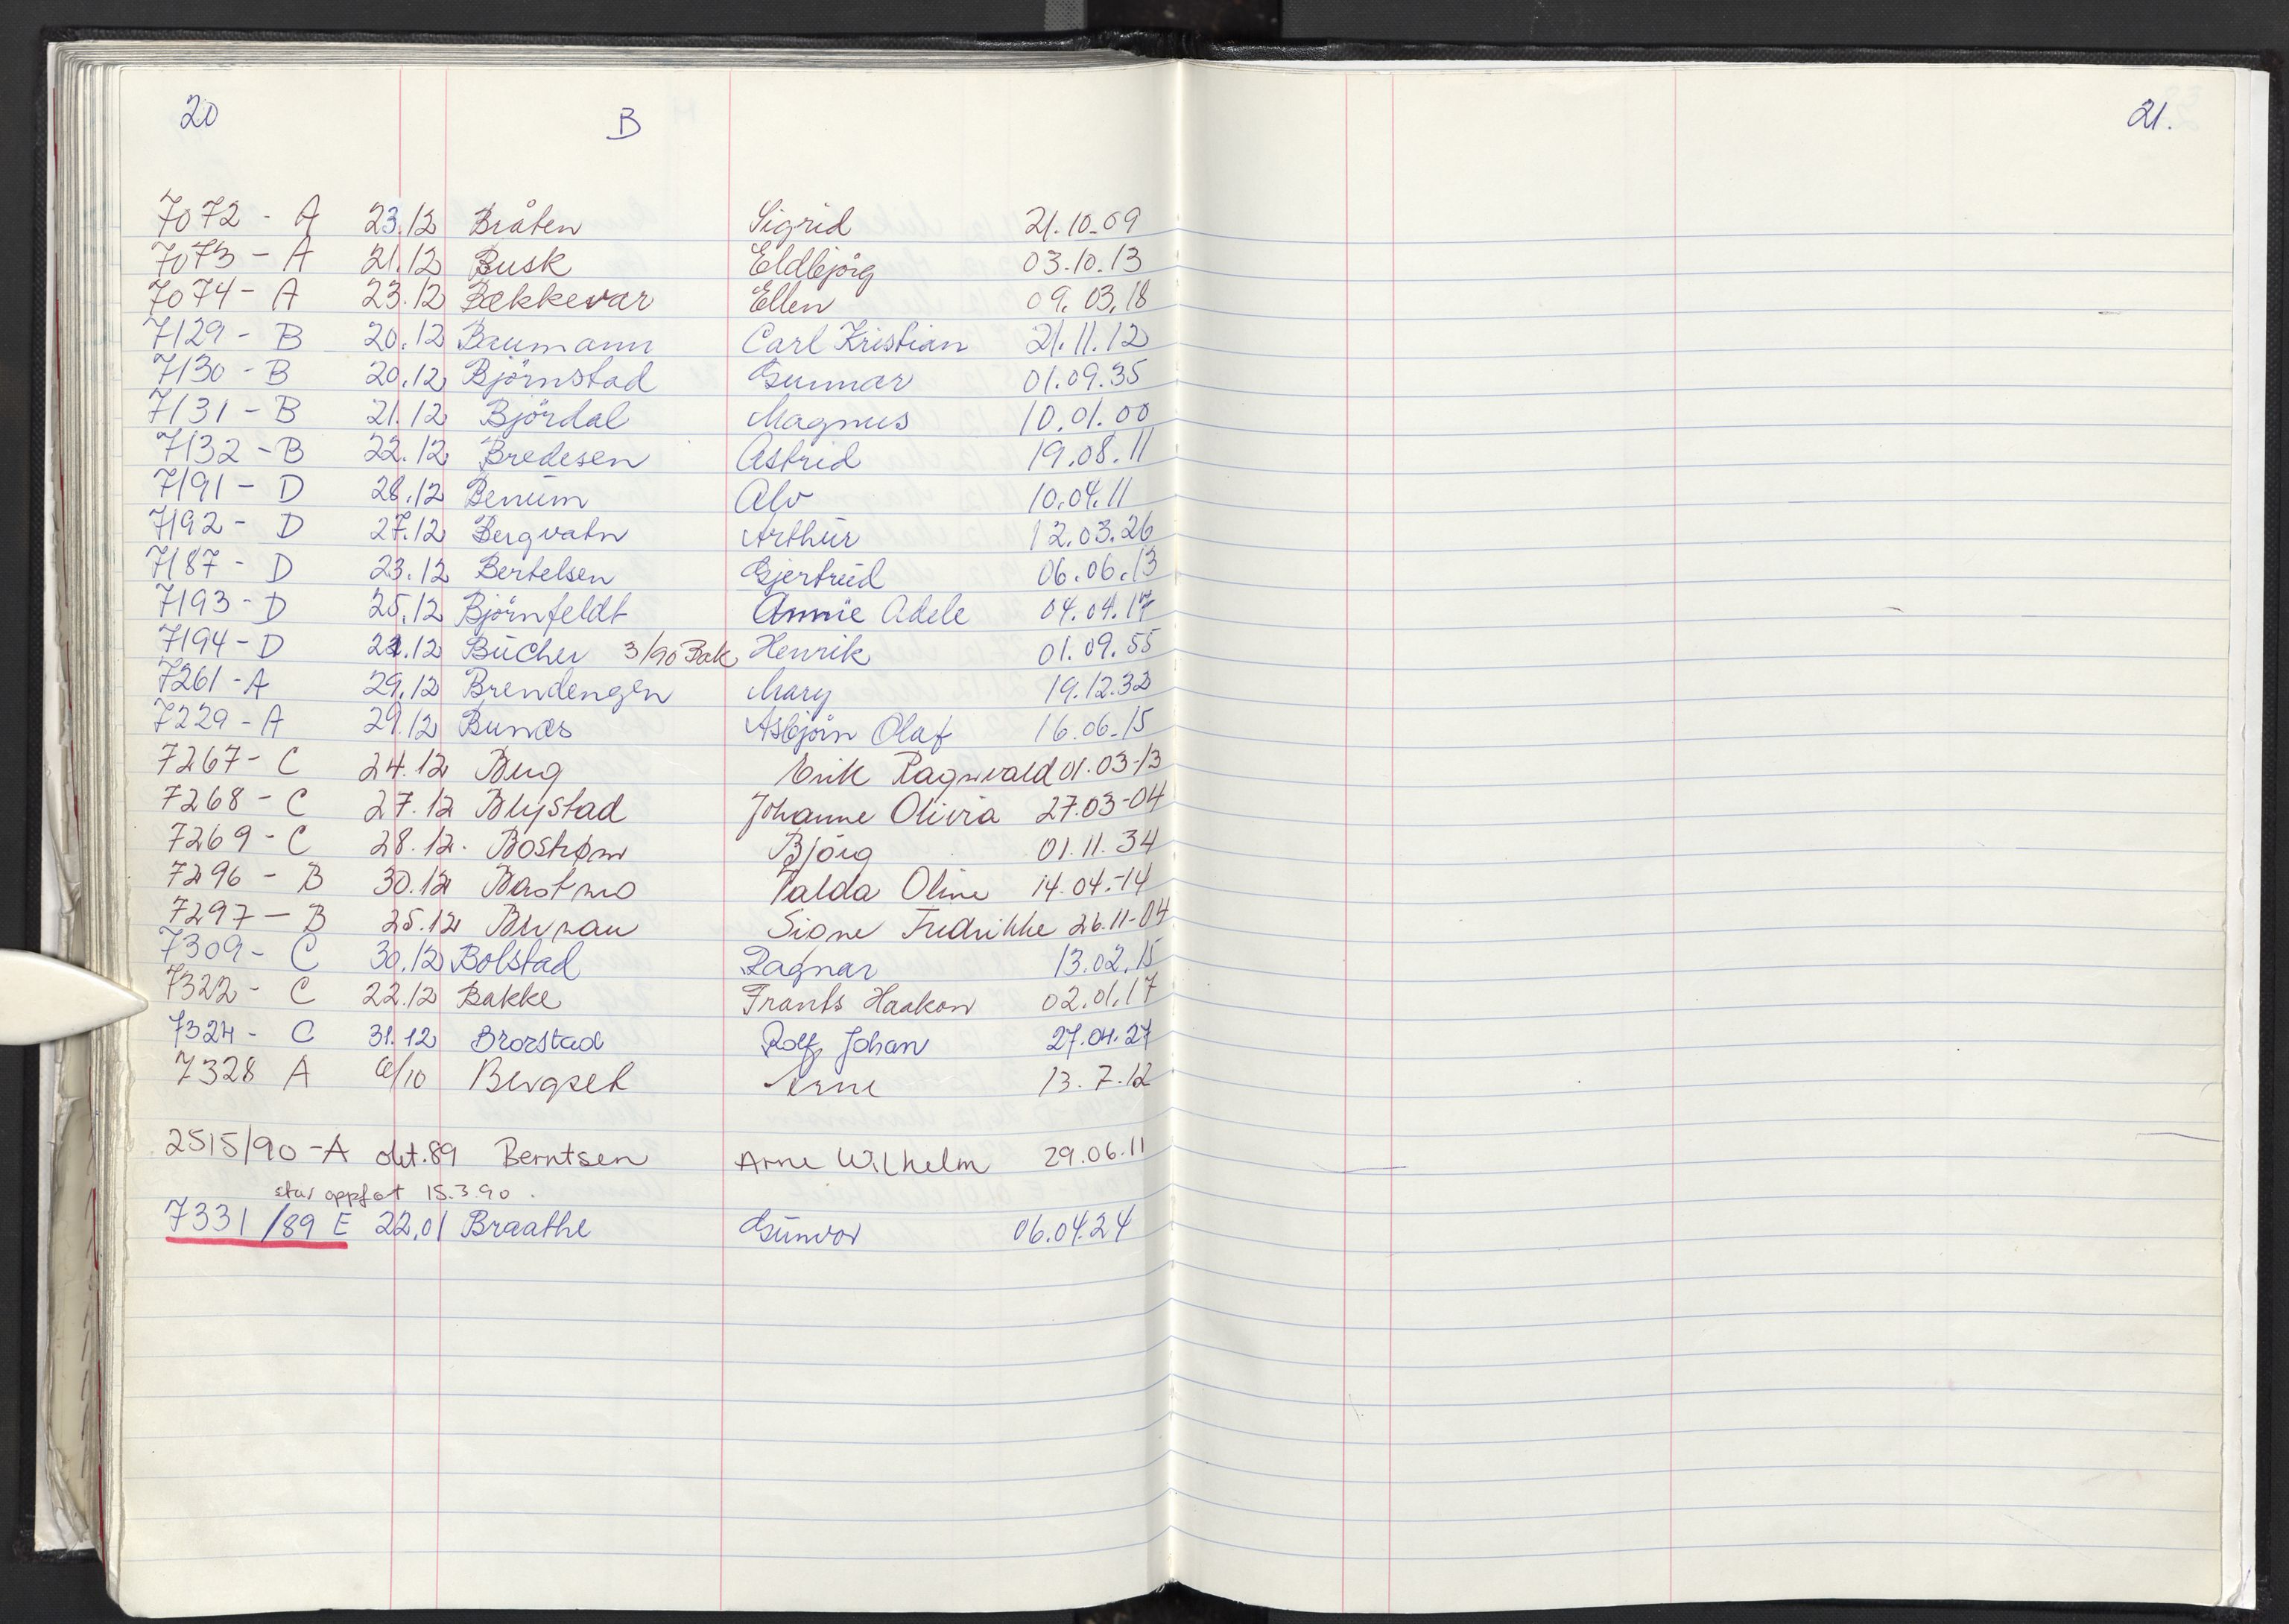 20
B
21.
7072 - A 23.12 Bråten Sigrid 21.10-09
7073 - A 21.12 Busk Eldbjørg 03.10.13
7074 - A 23.12 Bækkevar Ellen 09.03.18
7129 - B 20.12 Baumann Carl Kristian 21.11.12
7130 - B 20.12 Björnstad Gunnar 01.09.35
7131 - B 21.12 Björdal Magnus 10.01.00
7132 - B 22.12 Bredesen Astrid 19.08.11
7191 - D 28.12 Benum Alv 10.04.11
7192 - D 27.12 Bergvatn Arthur 12.03.26
7187 - D 23.12 Bertelsen Gjertrud 06.06.13
7193 - D 25.12 Björnfeldt Annie Adele 04.04.17
7194 - D .12 Bücher 3/90 Bak Henrik 01.09.55
7261 - A 29.12 Brendengen Mary 19.12.32
7229 - A 29.12 Bunæs Asbjörn Olaf 16.06.15
7267 - C 24.12 Berg Erik Ragnvald 01.03-13
7268 - C 27.12 Blystad Johanne Olivia 27.03-04
7269 - C 28.12. Bostrøm Bjórg 01.11.34
7296 - B 30.12 Bastmo Valda Oline 14.04.-14
7297 - B 25.12 Signe Fredrikke 26.11-04
7309 - C 30.12 Bolstad Ragnar 13.02.15
7322 - C 22.12 Bakke Frants Haakon 02.01.17
7324 - C 31.12 Brorstad Rolf Johan 27.04.27
7328 A /10 Bergset Arne 13.7.12
2515/90 -A okt.89 Berntsen Arne Wilhelm 29.06.11
står oppført 15.3.90.
7331/89 E 22.01 Braathe Gunvor 06.04.24